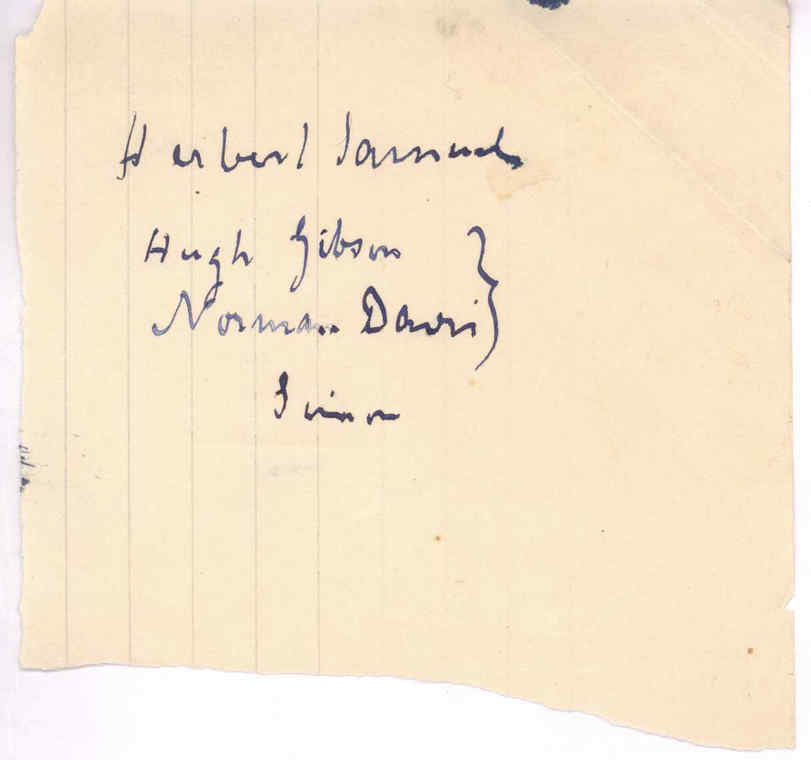 Herbert Samuel
Hugh Gibson
Norman Davis
Simon